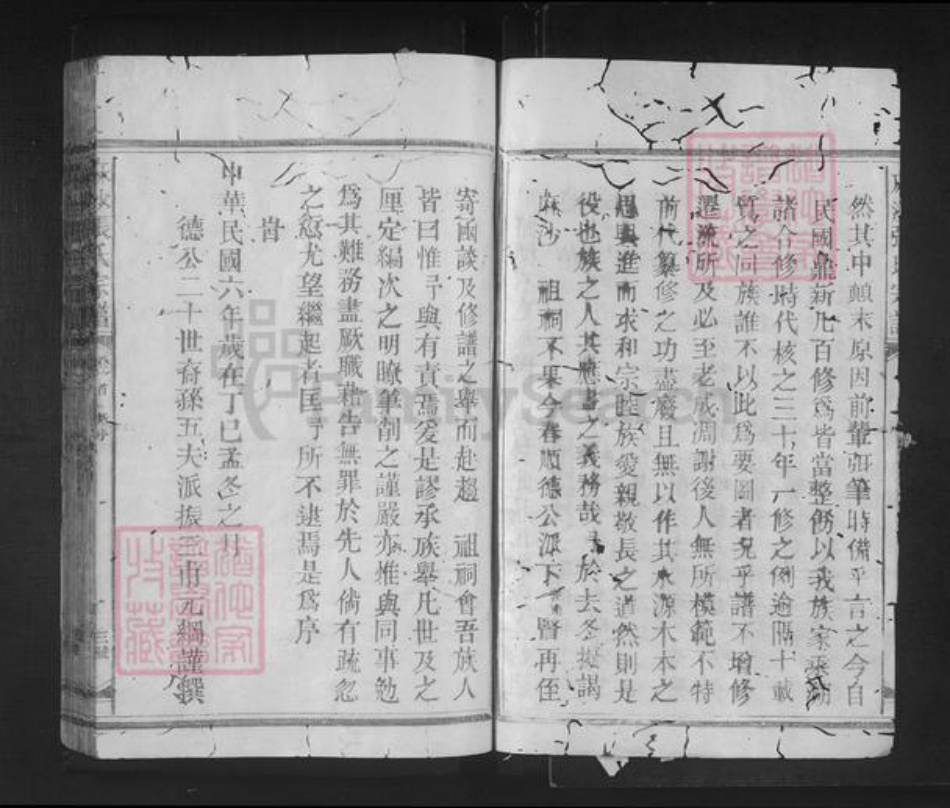 然其中顛末原因前輩弭筆時備乎言之今自
民國鼎新凡百修爲皆當整飭以我族家乘溯
諸合修時代核之三十年一修之例逾限十載
質之同族誰不以此爲要圖者況乎譜不增修
墨瀋所及必至老成凋謝後人無所模範不特
前代纂修之功盡廢且無以作其水源木本之
思與進而求和宗睦族愛親敬長之道然則是
役也族之人其應盡之義務哉 於去冬擬謁
麻沙 祖祠不果今春順德公派下 賢再侄
寄函談及修譜之舉而赴趨 祖祠會吾族人
皆曰惟予與有責焉爰是謬承族舉凡世及之
厘定編次之明瞭筆削之謹嚴亦惟與同事勉
爲其難務盡厥職藉告無罪於先人倘有疏忽
之愆尤望繼起者匡予所不逮焉是爲序
旹
中華民國六年歲在丁巳孟冬之月
德公二十世裔孫五夫派振 元綱謹撰
FamilySearch